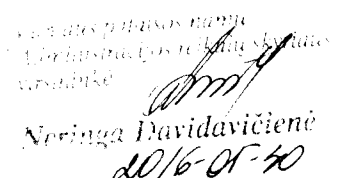 pataisos namų
Administracijos reikalų skyriaus
viršininkė
Neringa Davidavičienė
2016-05-30